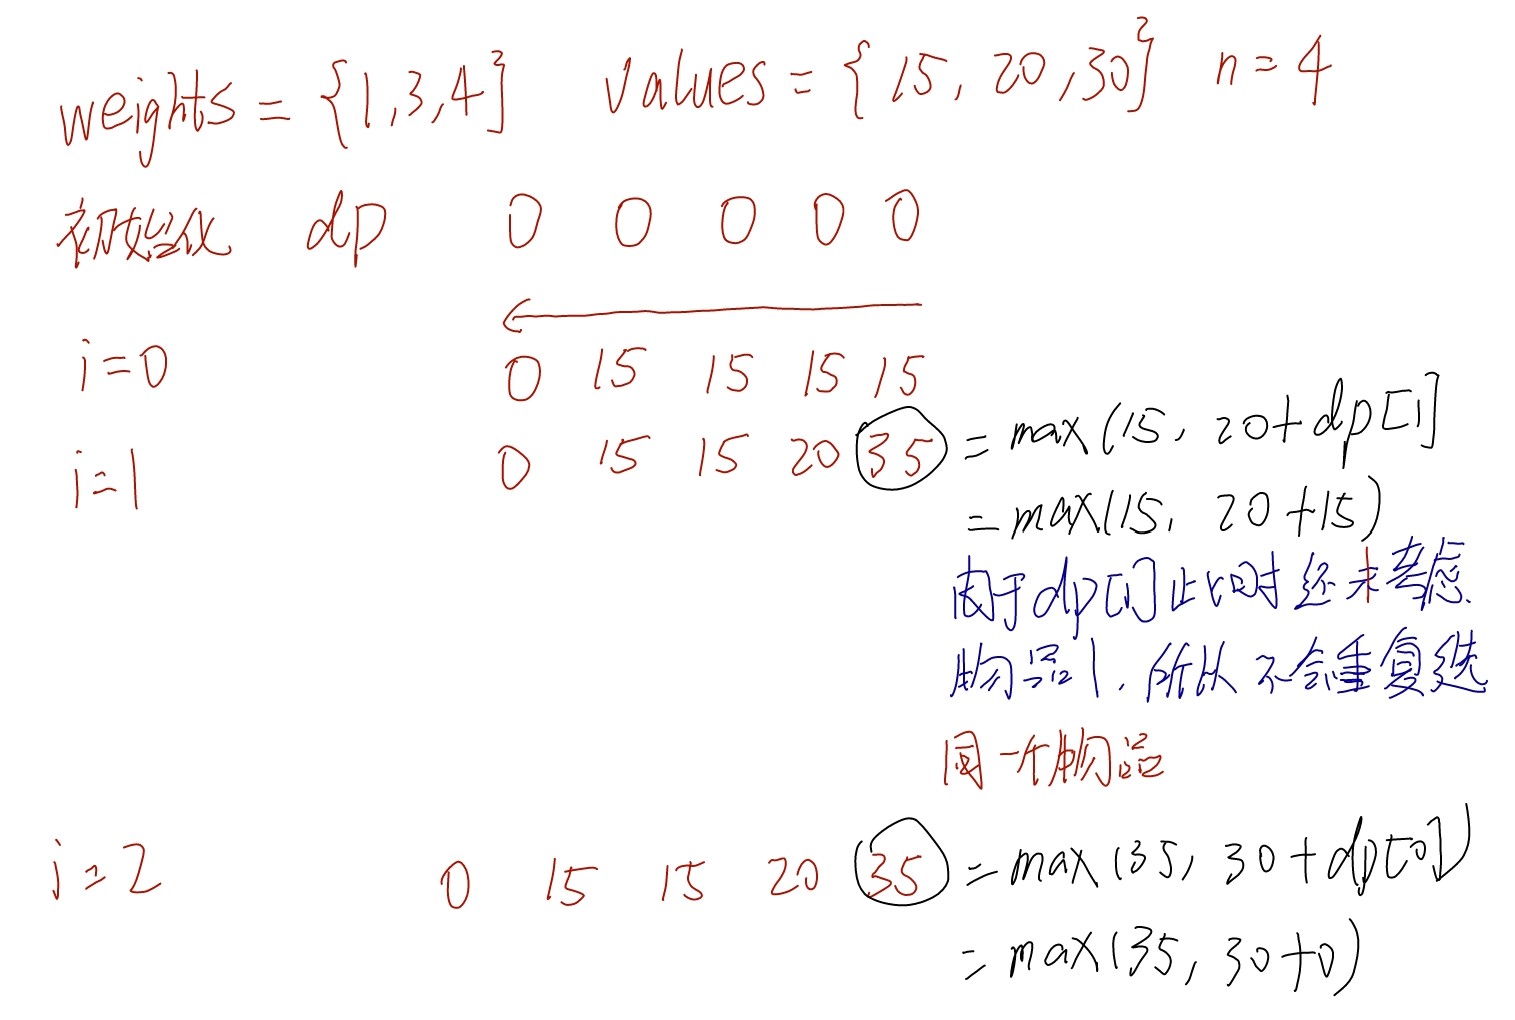 weights = {1,3,4} values = {15, 20,30} n = 4
初始化 dp 0 0 0 0 0
i=0 0 15 15 15 15
i=1 0 15 15 20 35 = max(15, 20+dp[1]
= max(15, 20+15)
由于dp[1]此时还未考虑
物品1, 所以不会重复选
同一个物品
i=2 0 15 15 20 35 = max(35, 30+dp[0])
= max(35, 30+0)